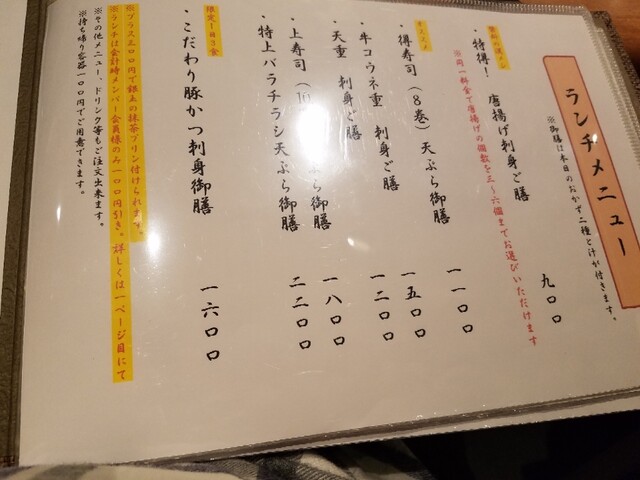 ランチメニュー
※御膳は本日のおかず二種と汁が付きます。
・特得! 唐揚げ刺身ご膳 九〇〇
※同一料金で唐揚げの個数を三〜六個までお選びいただけます
オススメ
・得寿司(8巻)天ぷら御膳 一一〇〇
・牛コウネ重 刺身ご膳 一五〇〇
・天重 刺身ご膳 一二〇〇
・上寿司(10 ぷら御膳 一八〇〇
・特上バラチラシ天ぷら御膳 二二〇〇
限定1日3食
・こだわり豚かつ刺身御膳 一六〇〇
※プラス二〇〇円で銀王の抹茶プリン付けられます。
※ランチは会計時メンバー会員様のみ一〇〇円引き。詳しくは一ページ目にて
※その他メニュー、ドリンク等もご注文出来ます。
※持ち帰り容器一〇〇円でご用意できます。